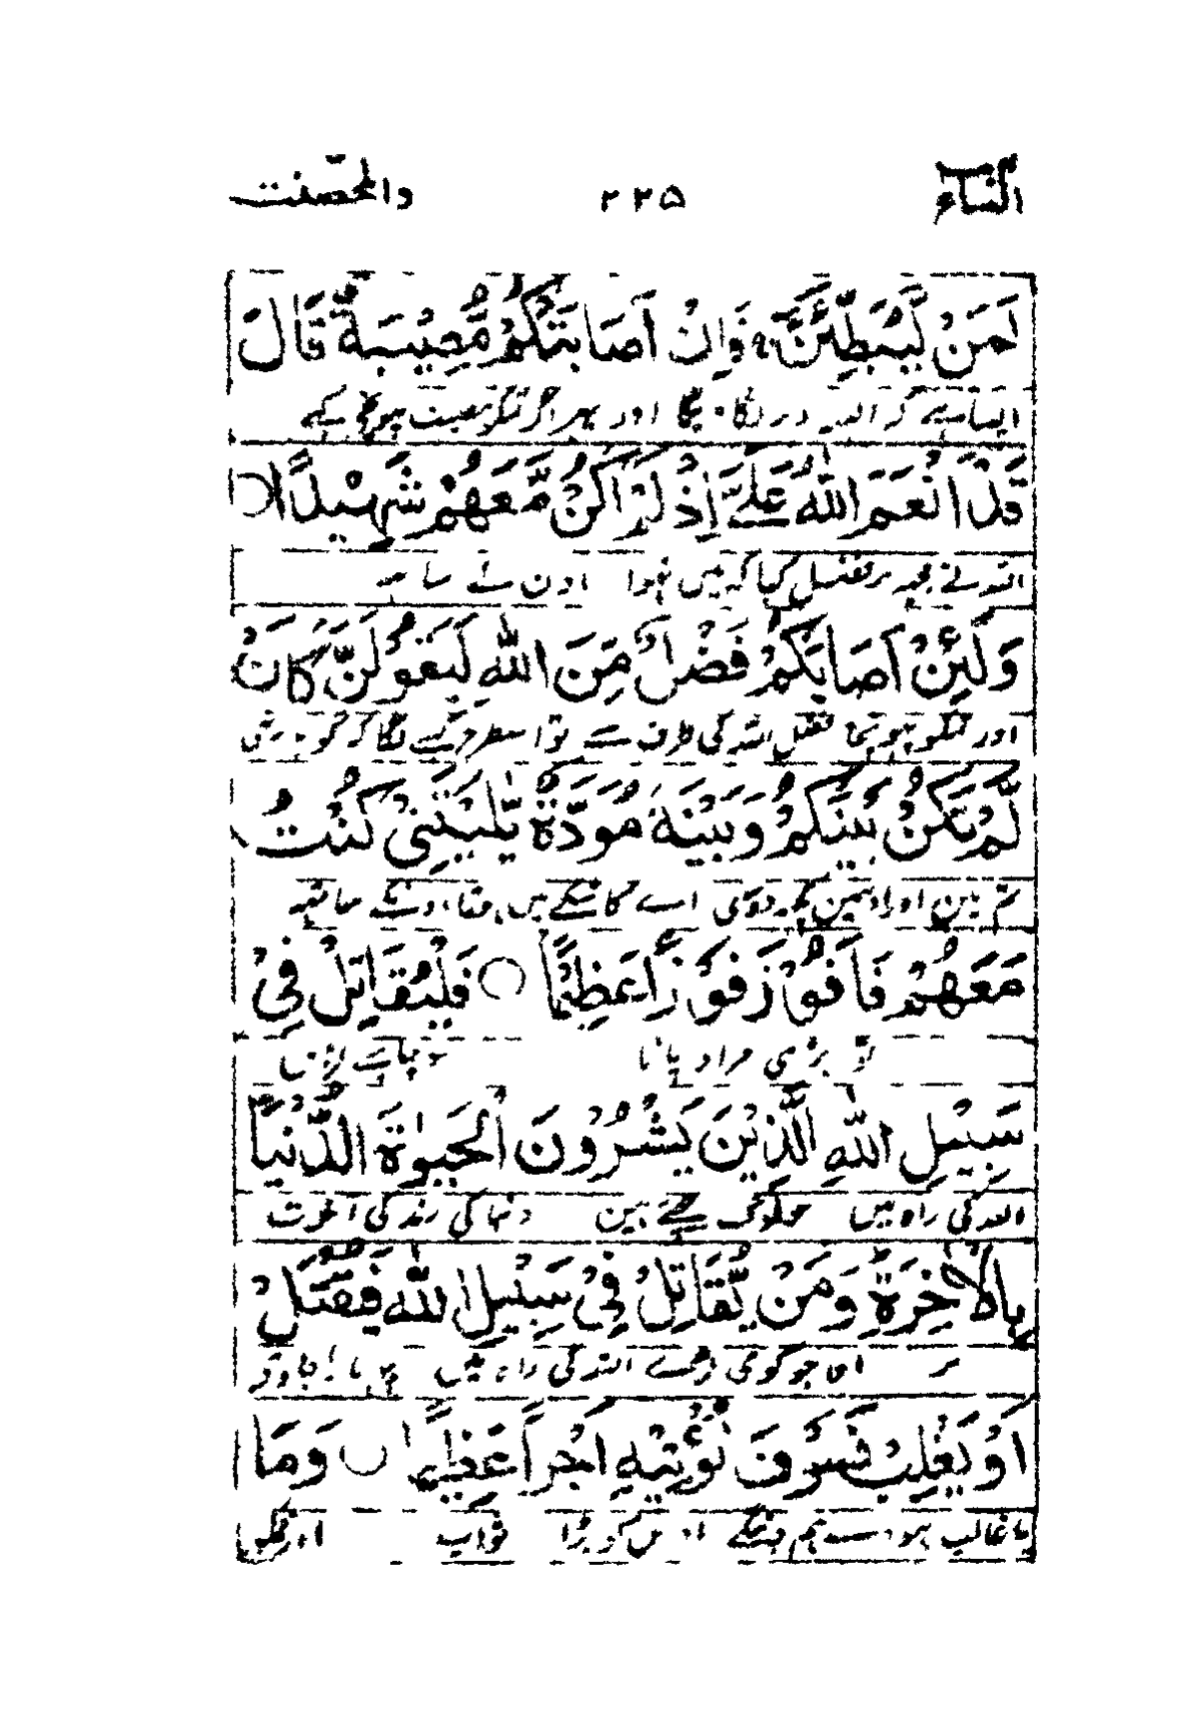 النساء ۲۲۵ والمحصنت
لَمَنْ لَّيُبَطِّئَنَّ ۚ فَاِنْ اَصَابَتْكُمْ مُّصِيْبَةٌ قَالَ
ایسا ہے کہ البتہ در لگا اور پھر اگر تمکو مصیبت پہونچے کہے
قَدْ اَنْعَمَ اللّٰهُ عَلَيَّ اِذْ لَمْ اَكُنْ مَّعَهُمْ شَهِيْدًا ۝
اللہ نے مجھ پر فضل کیا کہ میں نہوا اون کے ساتھ
وَلَئِنْ اَصَابَكُمْ فَضْلٌ مِّنَ اللّٰهِ لَيَقُوْلَنَّ كَاَنْ
اور تمکو پہونچا فضل اللہ کی طرف سے تو اسطرح کہنے لگا کہ گویا نہ تھی
لَّمْ تَكُنْ بَيْنَكُمْ وَبَيْنَهٗ مَوَدَّةٌ يّٰلَيْتَنِيْ كُنْتُ
تم میں اور اوسمین کچھ دوستی اے کاشکے میں ہوتا اونکے ساتھ
مَعَهُمْ فَاَفُوْزَ فَوْزًا عَظِيْمًا ۝ فَلْيُقَاتِلْ فِيْ
تو بڑی مراد پاتا سو چاہئے لڑیں
سَبِيْلِ اللّٰهِ الَّذِيْنَ يَشْرُوْنَ الْحَيٰوةَ الدُّنْيَا
اللہ کی راہ میں جو لوگ بیچتے ہین دنیا کی زندگی آخرت
بِالْاٰخِرَةِ ؕ وَمَنْ يُّقَاتِلْ فِيْ سَبِيْلِ اللّٰهِ فَيُقْتَلْ
پر اور جو کوئی لڑے اللہ کی راہ میں پھر مارا جاوے
اَوْ يَغْلِبْ فَسَوْفَ نُؤْتِيْهِ اَجْرًا عَظِيْمًا ۝ وَمَا
یا غالب ہووے ہم دینگے اوس کو بڑا ثواب اور